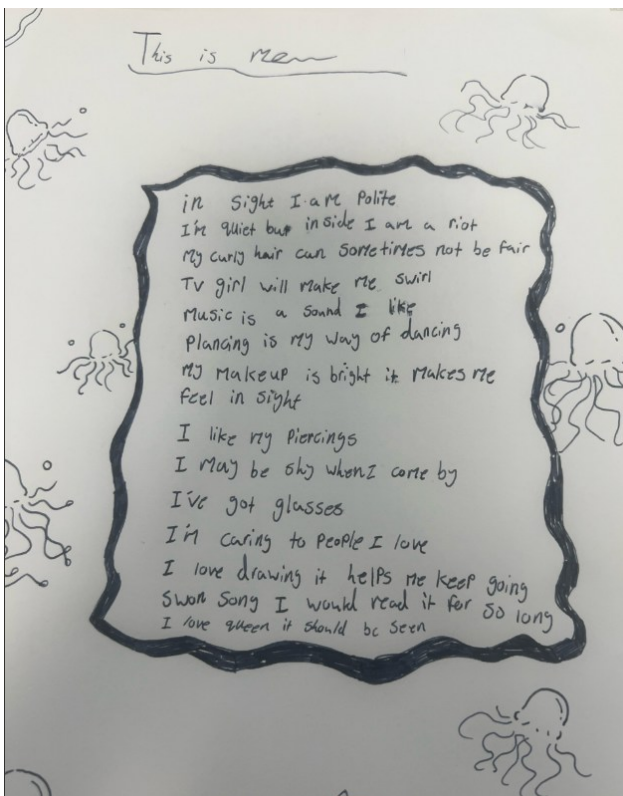 This is me
in Sight I am Polite
I'm quiet but inside I am a riot
My curly hair can sometimes not be fair
Tv girl will make me swirl
Music is a sound I like
Plancing is my way of dancing
My Makeup is bright it makes me
feel in sight
I like my Piercings
I may be shy when I come by
I've got glasses
I'm caring to People I love
I love drawing it helps me keep going
Swon Song I would read it for so long
I love queen it should be seen